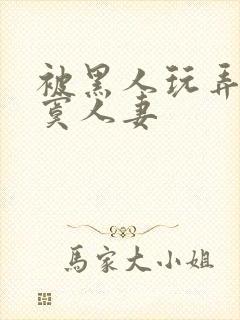 被黑人玩弄
寞人妻
馬家大小姐